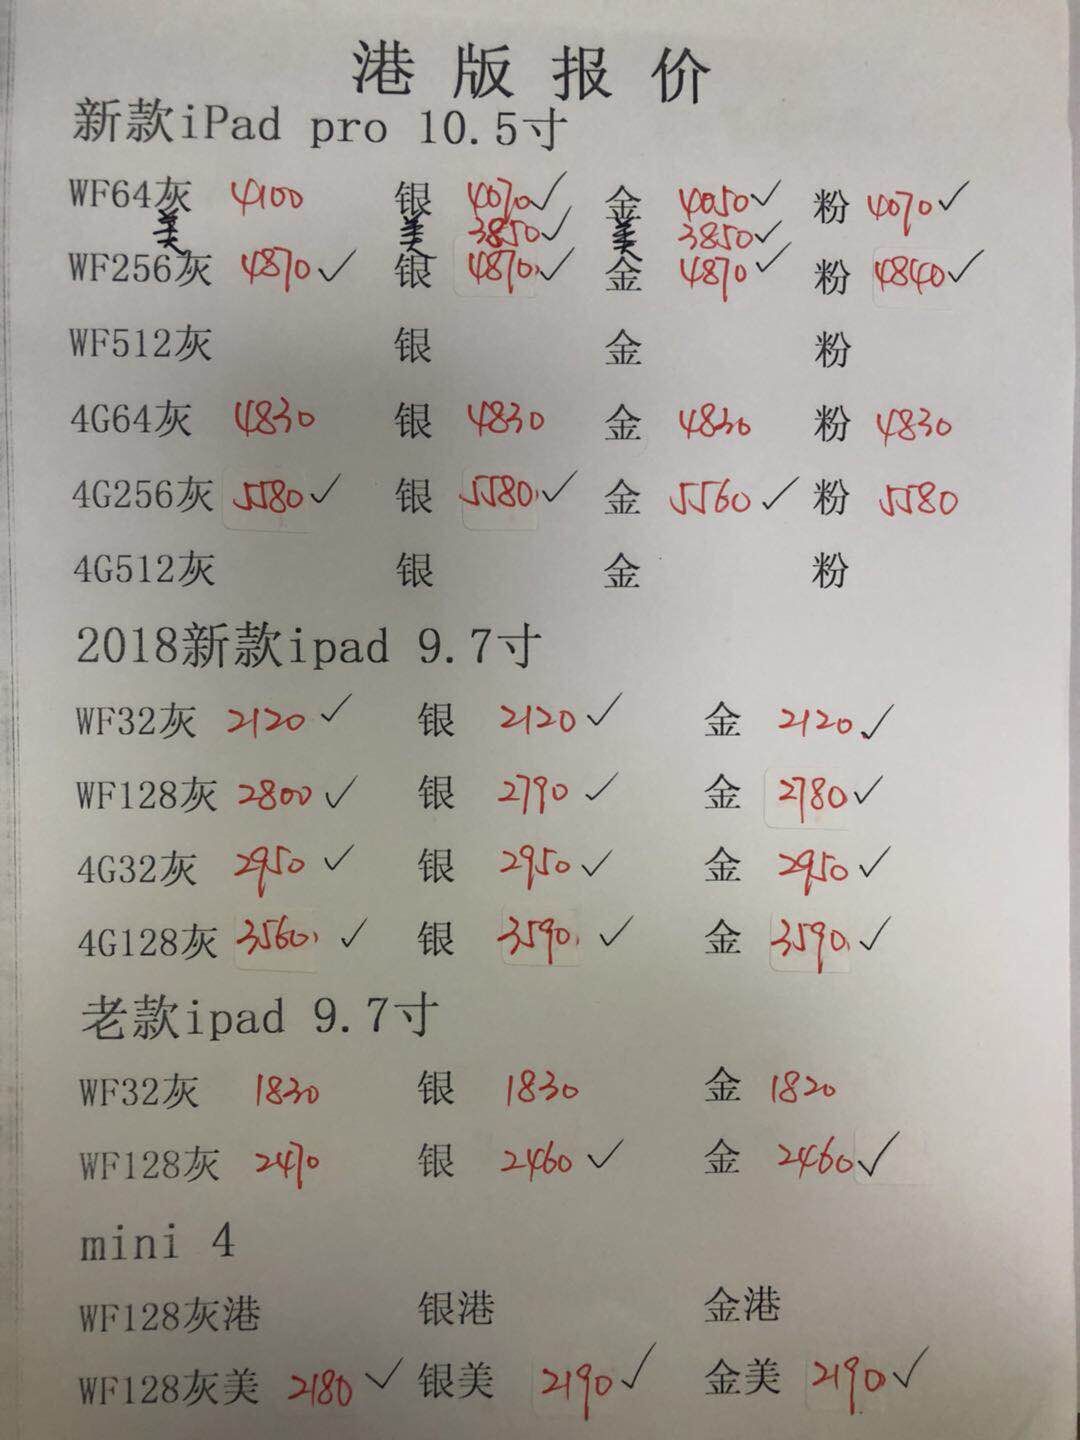 港版报价
新款iPad pro 10.5寸
WF64灰 4100 银 4070✓ 金 4050✓ 粉 4070✓
美 美 3850✓ 美 3850✓
WF256灰 4870✓ 银 4870✓ 金 4870✓ 粉 4840✓
WF512灰 银 金 粉
4G64灰 4830 银 4830 金 4830 粉 4830
4G256灰 5580✓ 银 5580✓ 金 5560✓ 粉 5580
4G512灰 银 金 粉
2018新款ipad 9.7寸
WF32灰 2120✓ 银 2120✓ 金 2120✓
WF128灰 2800✓ 银 2790✓ 金 2780✓
4G32灰 2950✓ 银 2950✓ 金 2950✓
4G128灰 3560✓ 银 3590✓ 金 3590✓
老款ipad 9.7寸
WF32灰 1830 银 1830 金 1820
WF128灰 2470 银 2460✓ 金 2460✓
mini 4
WF128灰港 银港 金港
WF128灰美 2180✓ 银美 2190✓ 金美 2190✓